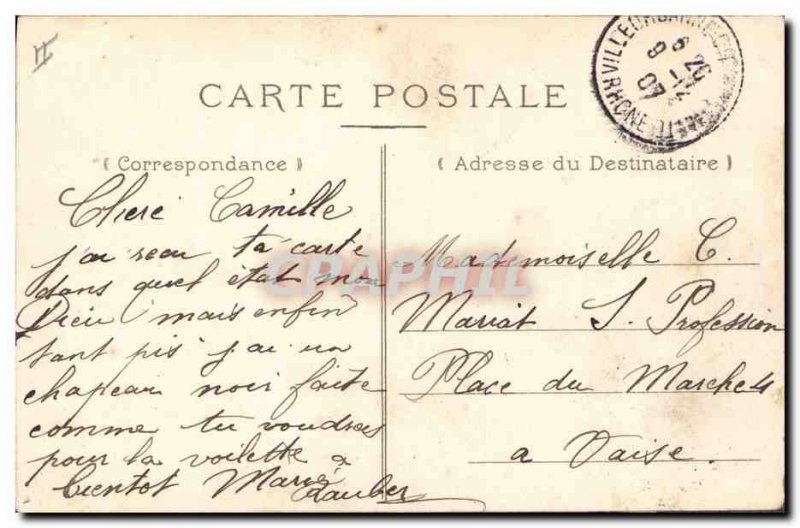 CARTE POSTALE
VILLEURBANNE
8 25
9 -12
07
RHONE
( Correspondance )
( Adresse du Destinataire )
Cheré Camille
j'ai recu ta carte
dans quel état mon
Dieu mais enfin
tant pis j'ai un
chapeau noir faite
comme tu voudras
pour la voilette a
bientot Marie
Mademoiselle C.
Mariat S. Profession
Place du Marche 4
a Vaise.
CPAPHIL